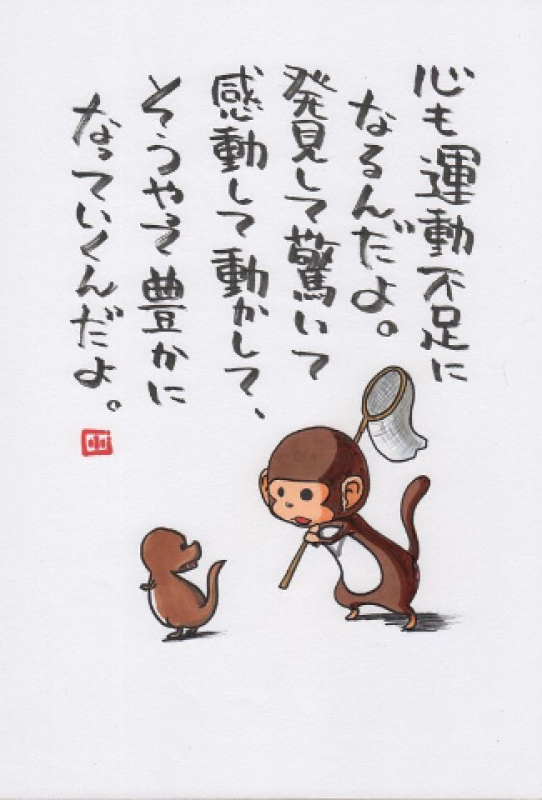 心も運動不足に
なるんだよ。
発見して驚いて
感動して動かして、
そうやって豊かに
なっていくんだよ。